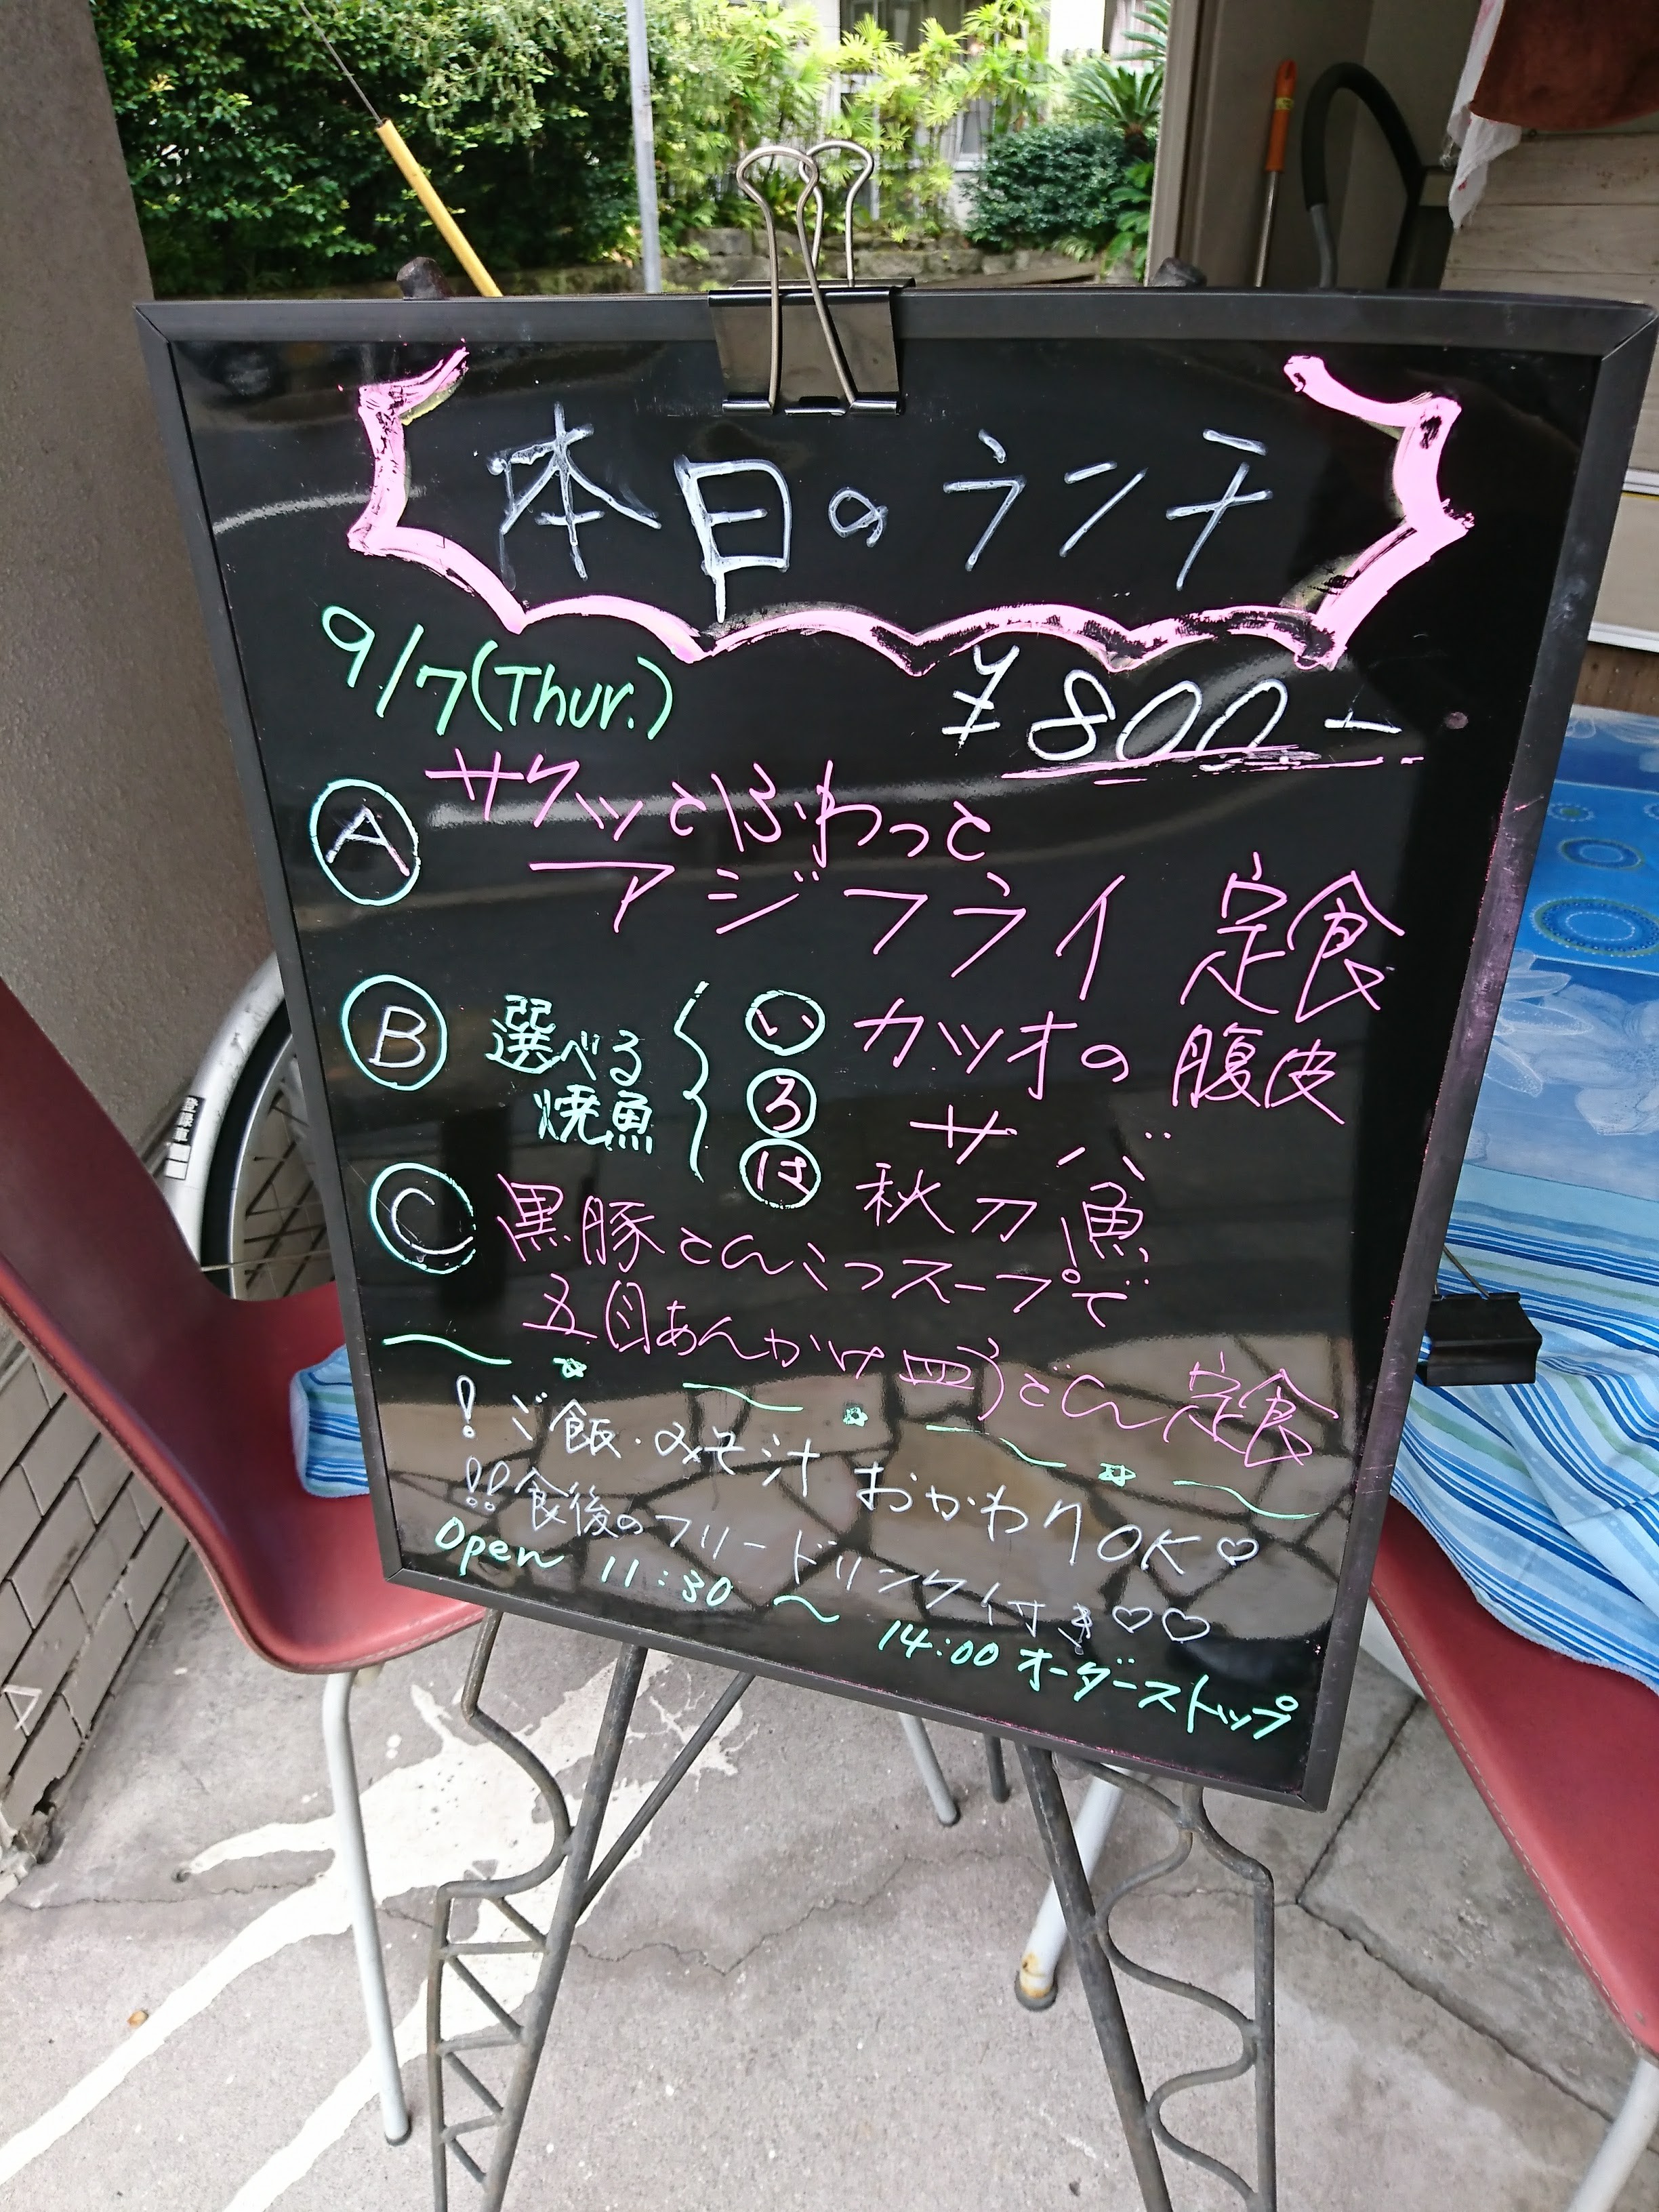 本日のランチ
9/7(Thur.)
¥800-
Ⓐ サクッとふわっと
アジフライ 定食
Ⓑ 選べる
焼魚
い カツオの腹皮
ろ サバ
は 秋刀魚
Ⓒ 黒豚とんこつスープで
五目あんかけ皿うどん定食
! ご飯・みそ汁 おかわりOK♡
!! 食後のフリードリンク付き♡♡
Open 11:30 〜 14:00 オーダーストップ
登録車